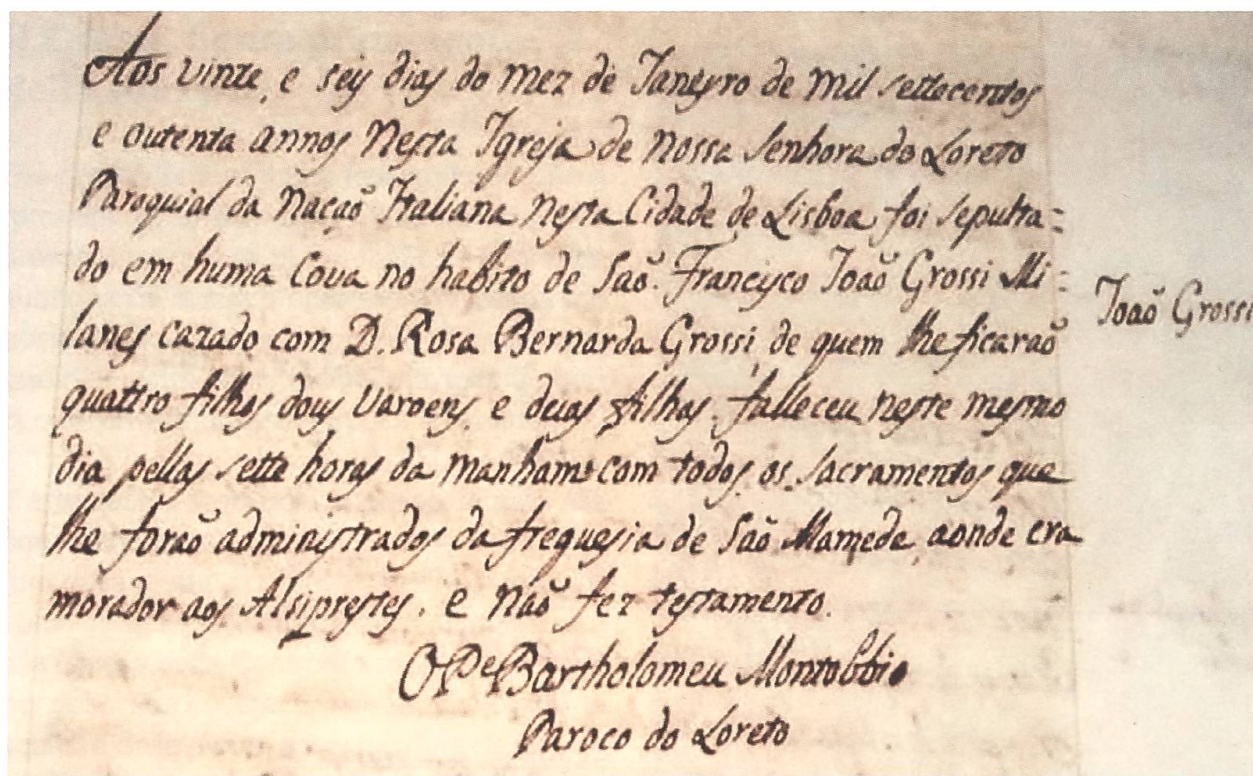 Aos vinte, e seis dias do mez de Janeyro de mil settecentos
e outenta annos nesta Igreja de nossa Senhora do Loreto
Paroquial da Nação Italiana nesta Cidade de Lisboa foi sepulta=
do em huma Cova no habito de São Francisco João Grossi Mi=
lanes cazado com D. Rosa Bernarda Grossi, de quem lhe ficarão
quattro filhos dous varoens, e duas filhas. falleceu neste mesmo
dia pellas sette horas da manham com todos os sacramentos que
lhe forão administrados da freguesia de São Mamede, aonde era
morador aos Alsiprestes. e não fez testamento.
O Pe Bartholomeu Montobbio
Paroco do Loreto
João Grossi